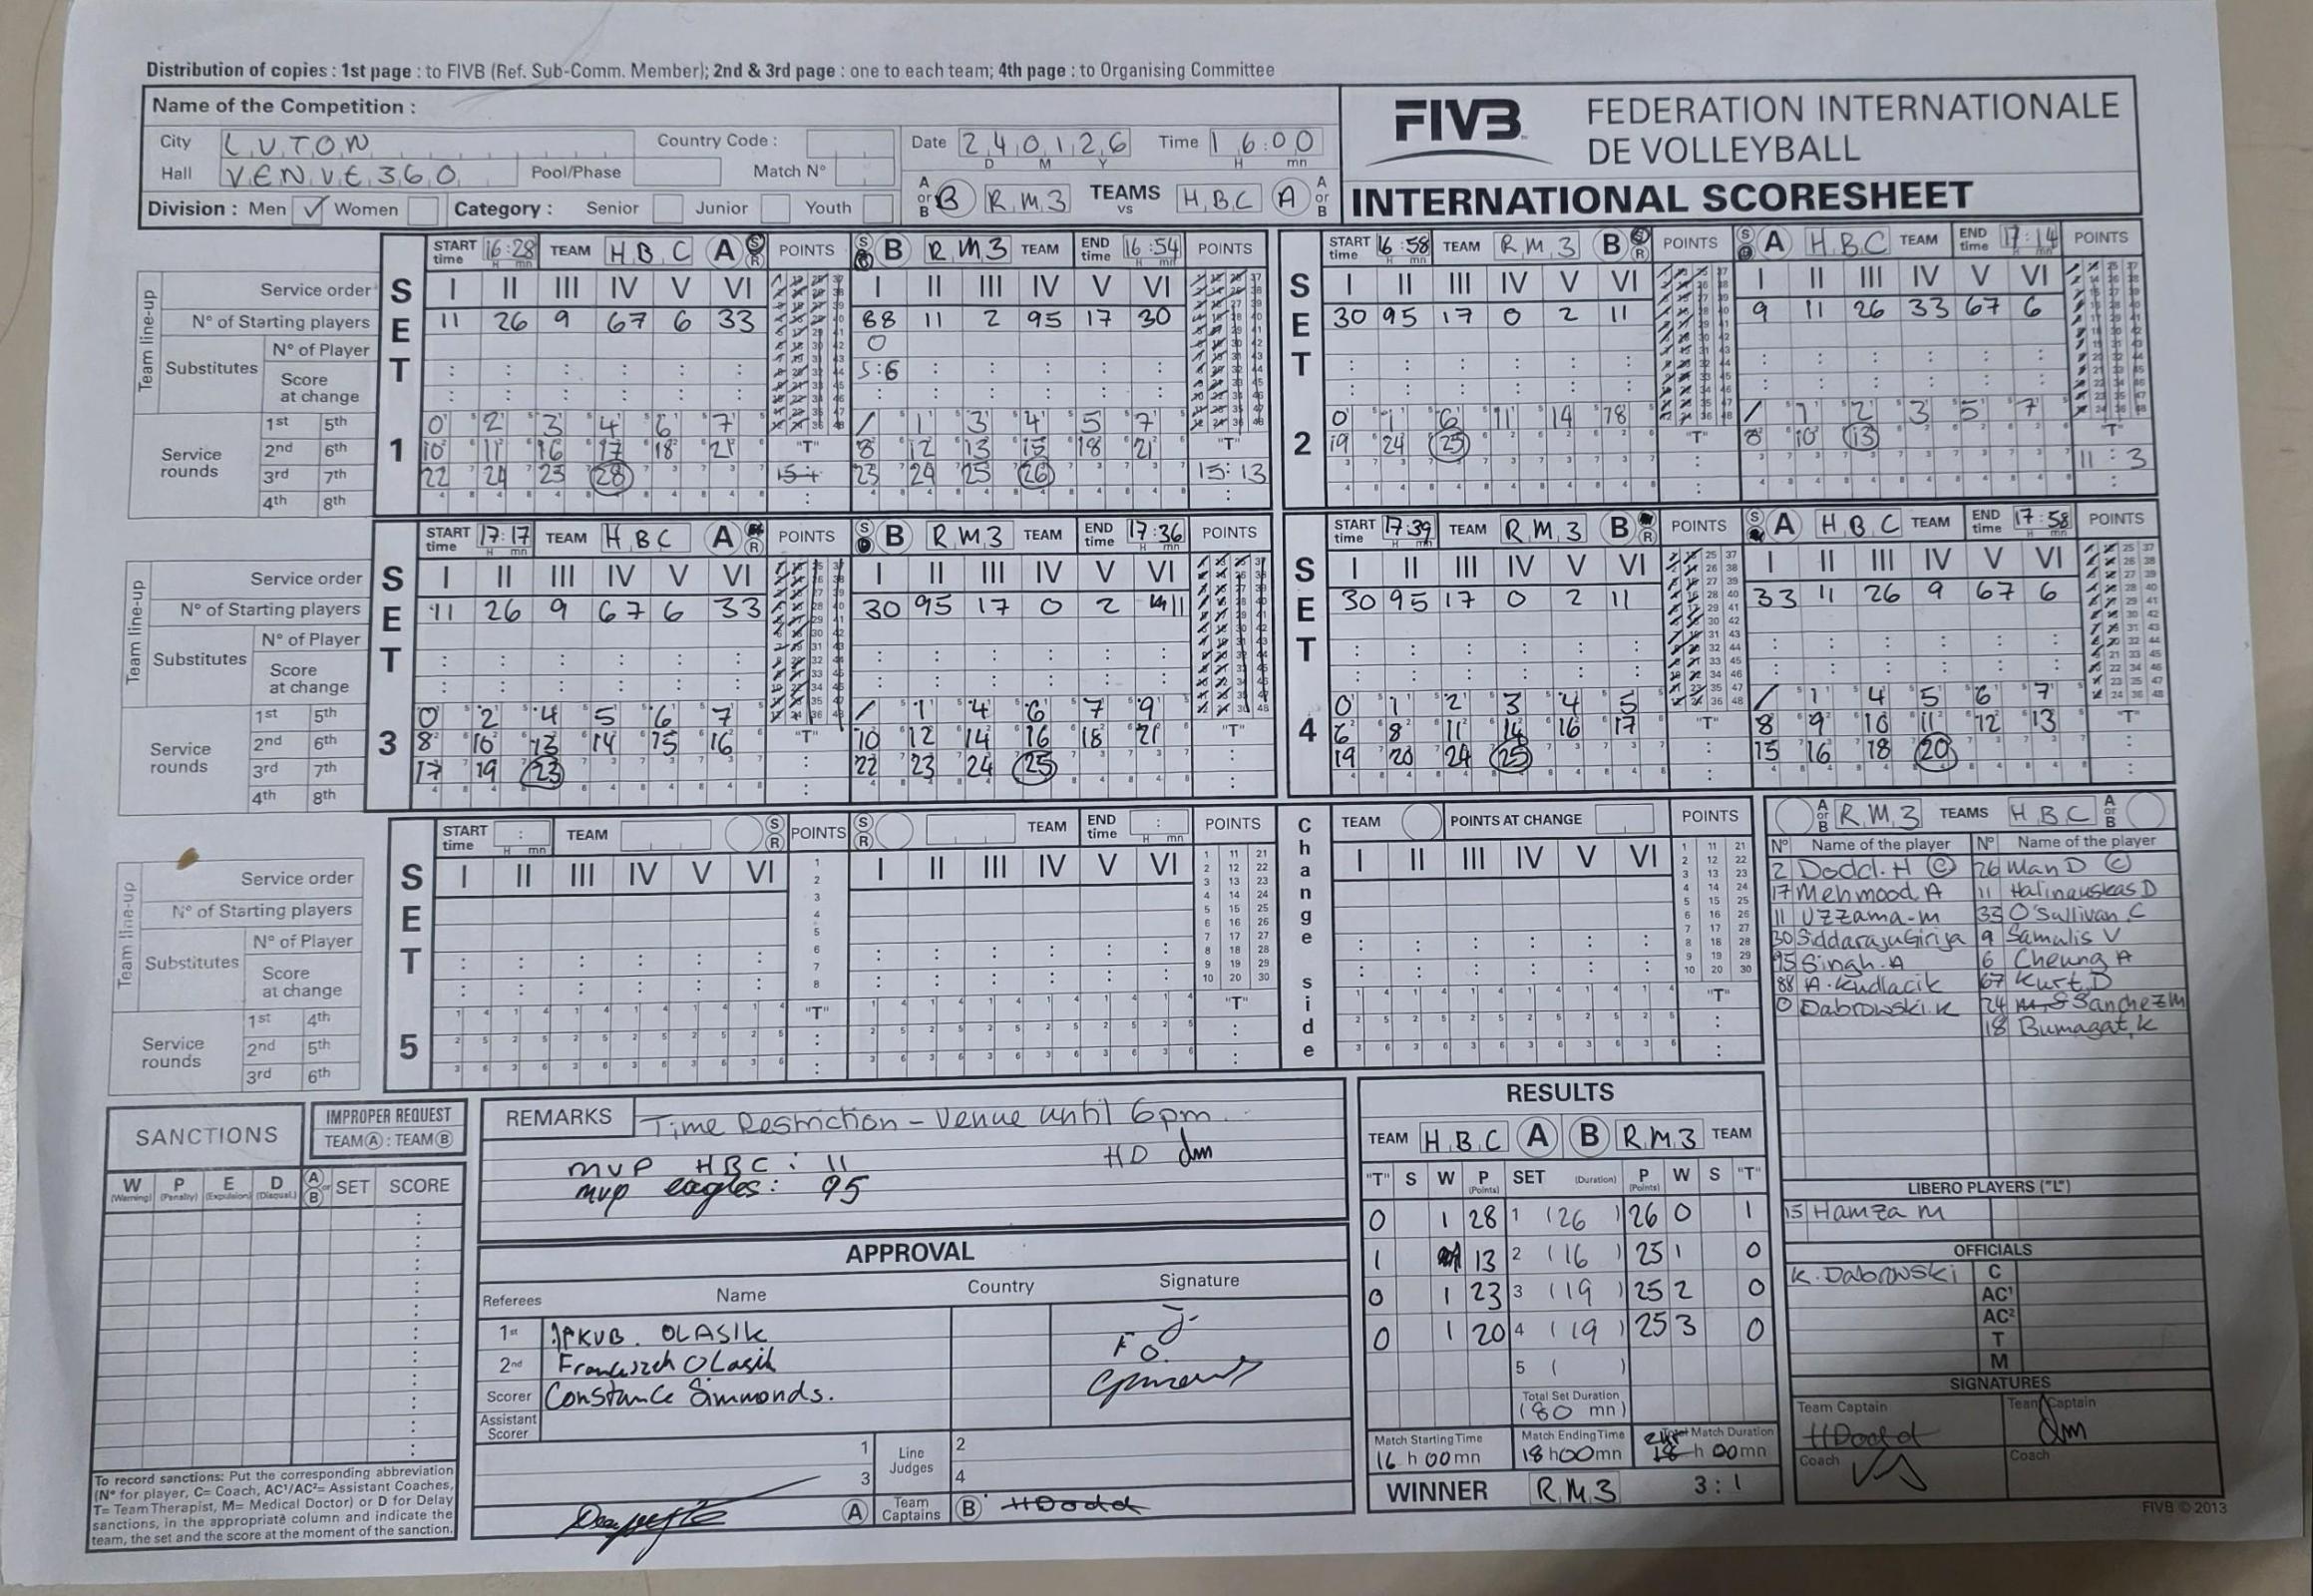 Distribution of copies : 1st page : to FIVB (Ref. Sub-Comm. Member); 2nd & 3rd page : one to each team; 4th page : to Organising Committee
Name of the Competition :
City LUTON Country Code : Date 240126 Time 16:00
D M Y H mn
Hall VENUE360 Pool/Phase Match N°
Division : Men ✓ Women Category : Senior Junior Youth
A or B B RM3 TEAMS vs HBC A A or B
FIVB FEDERATION INTERNATIONALE
DE VOLLEYBALL
INTERNATIONAL SCORESHEET
SET 1
START time 16:28 TEAM HBC A S R POINTS S R B RM3 TEAM END time 16:54 POINTS
Service order I II III IV V VI I II III IV V VI
N° of Starting players 11 26 9 67 6 33 88 11 2 95 17 30
Team line-up Substitutes N° of Player 0
Score at change 5:6
Service rounds
1st 5th 0 2 3 4 6 7 / 1 3 4 5 7
2nd 6th 10 11 16 17 18 21 "T" 8 12 13 15 18 21 "T"
3rd 7th 22 24 25 28 23 24 25 26 15:13
4th 8th
SET 2
START time 16:58 TEAM RM3 B S R POINTS S R A HBC TEAM END time 17:14 POINTS
I II III IV V VI I II III IV V VI
30 95 17 0 2 11 9 11 26 33 67 6
0 1 6 11 14 18 / 1 2 3 5 7
19 24 25 "T" 8 10 13 "T"
11:3
SET 3
START time 17:17 TEAM HBC A S R POINTS S R B RM3 TEAM END time 17:36 POINTS
Service order I II III IV V VI I II III IV V VI
N° of Starting players 11 26 9 67 6 33 30 95 17 0 2 11
Team line-up Substitutes N° of Player
Score at change
Service rounds
1st 5th 0 2 4 5 6 7 / 1 4 6 7 9
2nd 6th 8 10 13 14 15 16 "T" 10 12 14 16 18 21 "T"
3rd 7th 17 19 23 22 23 24 25
4th 8th
SET 4
START time 17:39 TEAM RM3 B S R POINTS S R A HBC TEAM END time 17:58 POINTS
I II III IV V VI I II III IV V VI
30 95 17 0 2 11 33 11 26 9 67 6
0 1 2 3 4 5 / 1 4 5 6 7
6 8 11 14 16 17 "T" 8 9 10 11 12 13 "T"
19 20 24 25 15 16 18 20
SET 5
START time TEAM S R POINTS S R TEAM END time POINTS
Service order I II III IV V VI I II III IV V VI
N° of Starting players
Team line-up Substitutes N° of Player
Score at change
Service rounds
1st 4th "T" "T"
2nd 5th
3rd 6th
Change side
TEAM POINTS AT CHANGE POINTS
I II III IV V VI
"T"
A or B RM3 TEAMS HBC A or B
N° Name of the player N° Name of the player
2 Dodd.H © 26 Man D ©
17 Mehmood.A 11 Halinauskas D
11 Uzzama-m 33 O'Sullivan C
30 SiddarajuGirija 9 Samulis V
95 Singh.A 6 Cheung A
88 A.Kudlacik 67 Kurt.D
0 Dabrowski.K 24 Sanchez M
18 Bumagat.K
LIBERO PLAYERS ("L")
15 Hamza M
OFFICIALS
K. Dabrowski C
AC¹
AC²
T
M
SIGNATURES
Team Captain Team Captain
HDodd dm
Coach Coach
SANCTIONS
IMPROPER REQUEST
TEAM Ⓐ : TEAM Ⓑ
W (Warning) P (Penalty) E (Expulsion) D (Disqual.) A or B SET SCORE
To record sanctions: Put the corresponding abbreviation
(N° for player, C= Coach, AC¹/AC²= Assistant Coaches,
T= Team Therapist, M= Medical Doctor) or D for Delay
sanctions, in the appropriate column and indicate the
team, the set and the score at the moment of the sanction.
REMARKS Time Restriction - Venue until 6pm.
HD dm
mvp HBC : 11
mvp eagles: 95
APPROVAL
Referees Name Country Signature
1st JAKUB. OLASIK
2nd Franciszek Olasik F.O.
Scorer Constance Simmonds.
Assistant Scorer
1 Line Judges 2
3 4
A Team Captains B HDodd
RESULTS
TEAM HBC A B RM3 TEAM
"T" S W P (Points) SET (Duration) P (Points) W S "T"
0 1 28 1 (26) 26 0 1
1 13 2 (16) 25 1 0
0 1 23 3 (19) 25 2 0
0 1 20 4 (19) 25 3 0
5 ( )
Total Set Duration
(80 mn)
Match Starting Time Match Ending Time Total Match Duration
16 h 00 mn 18 h 00 mn 2hr h 00 mn
WINNER RM3 3:1
FIVB © 2013